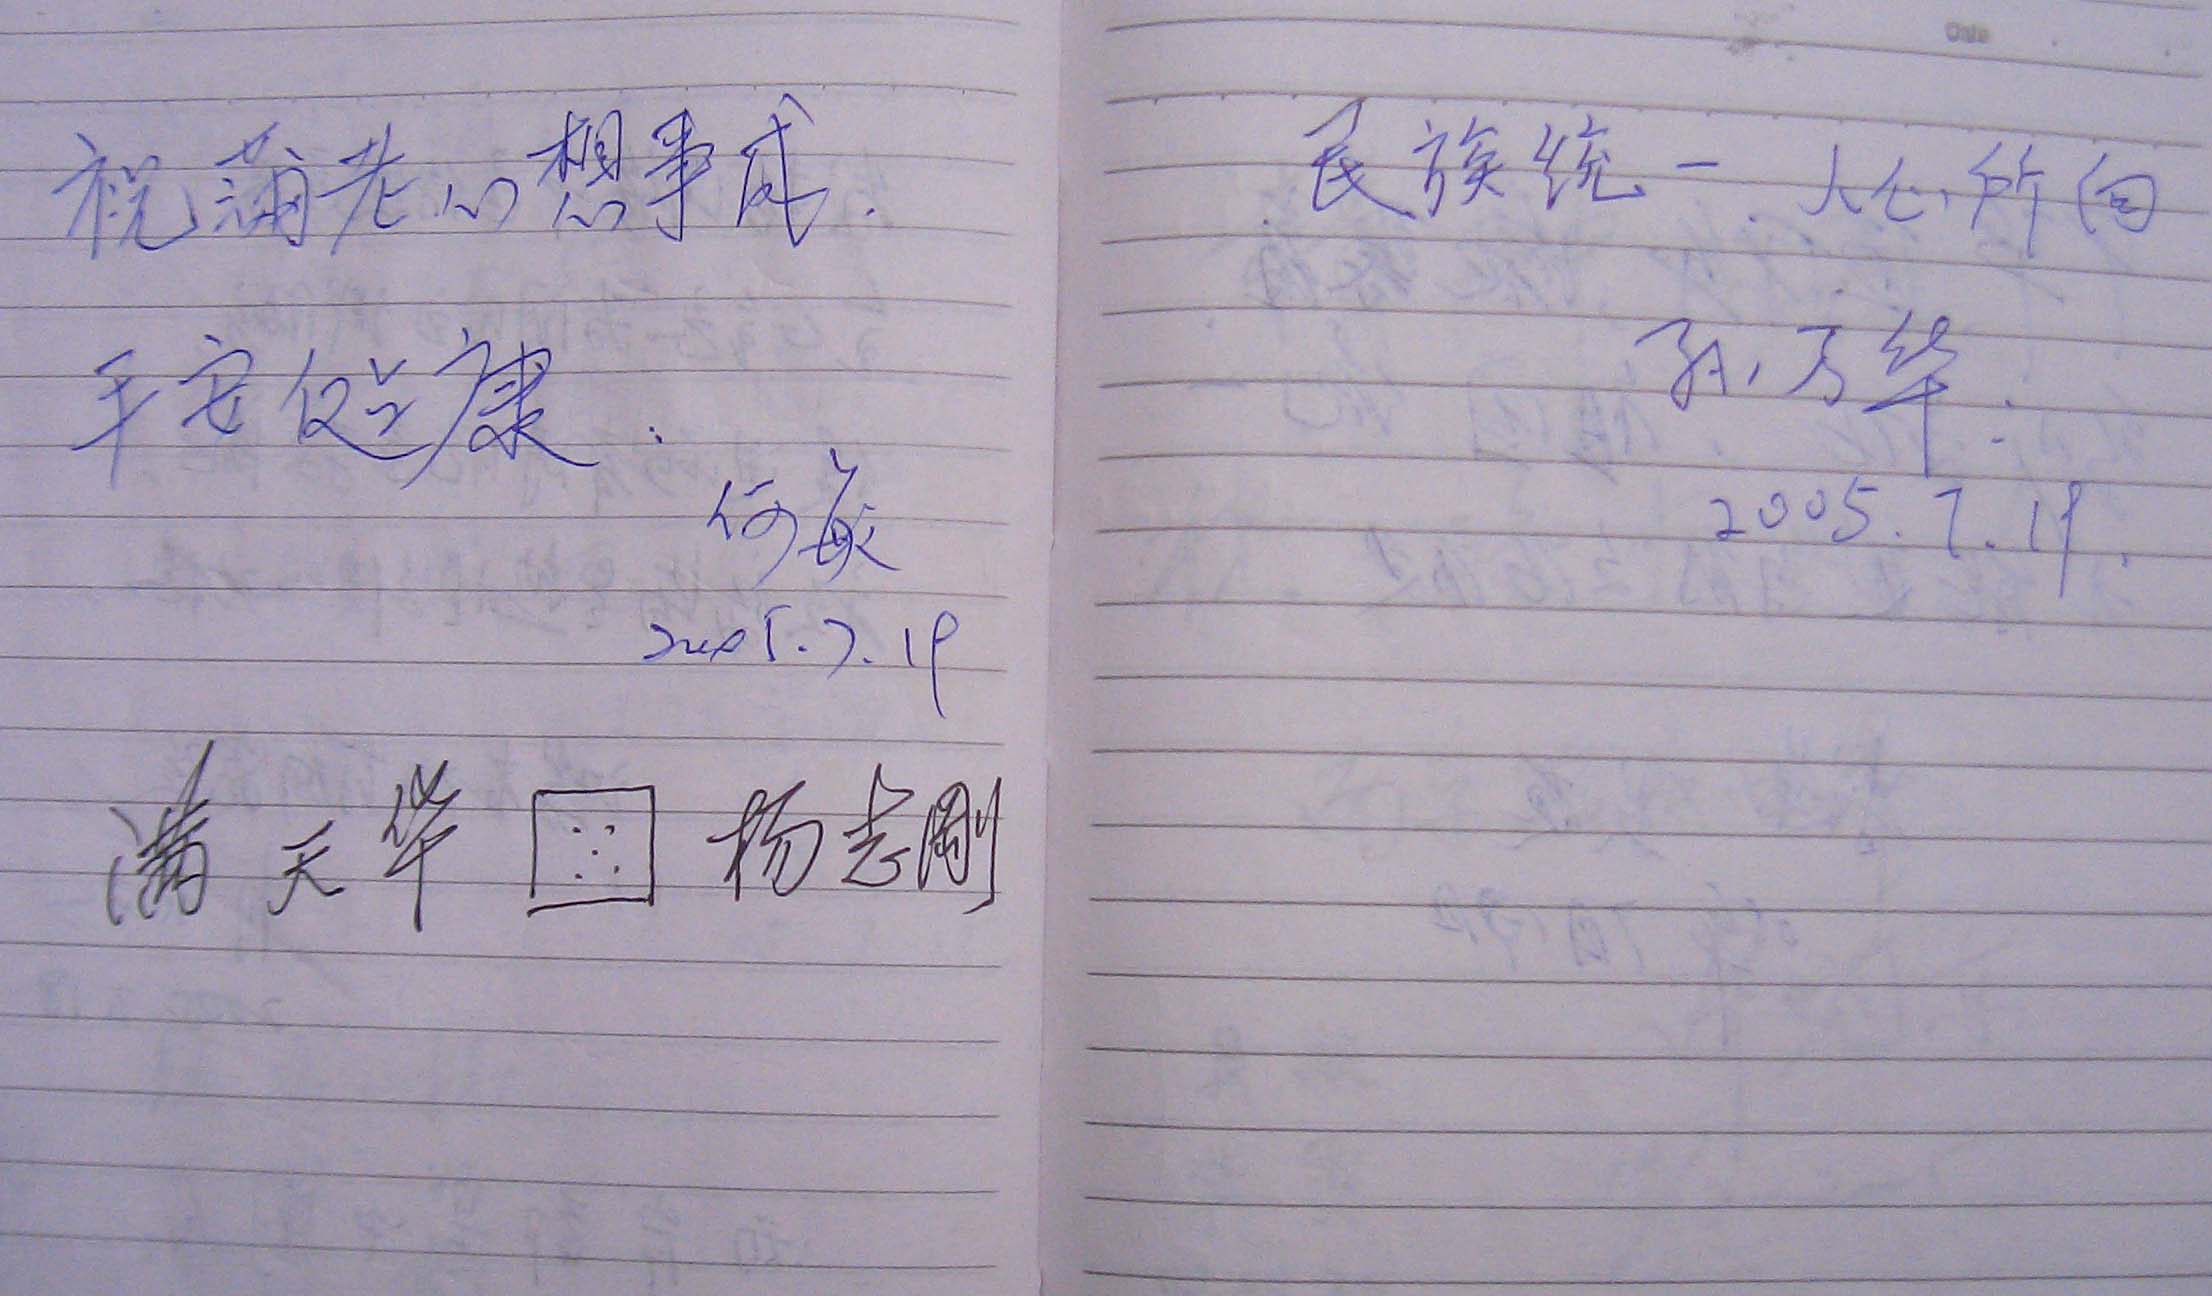 祝蒲老心想事成.
平安健康.
何敏
2005.7.19
满天华 杨志刚
民族统一.人心所向
孙万华.
2005.7.19.